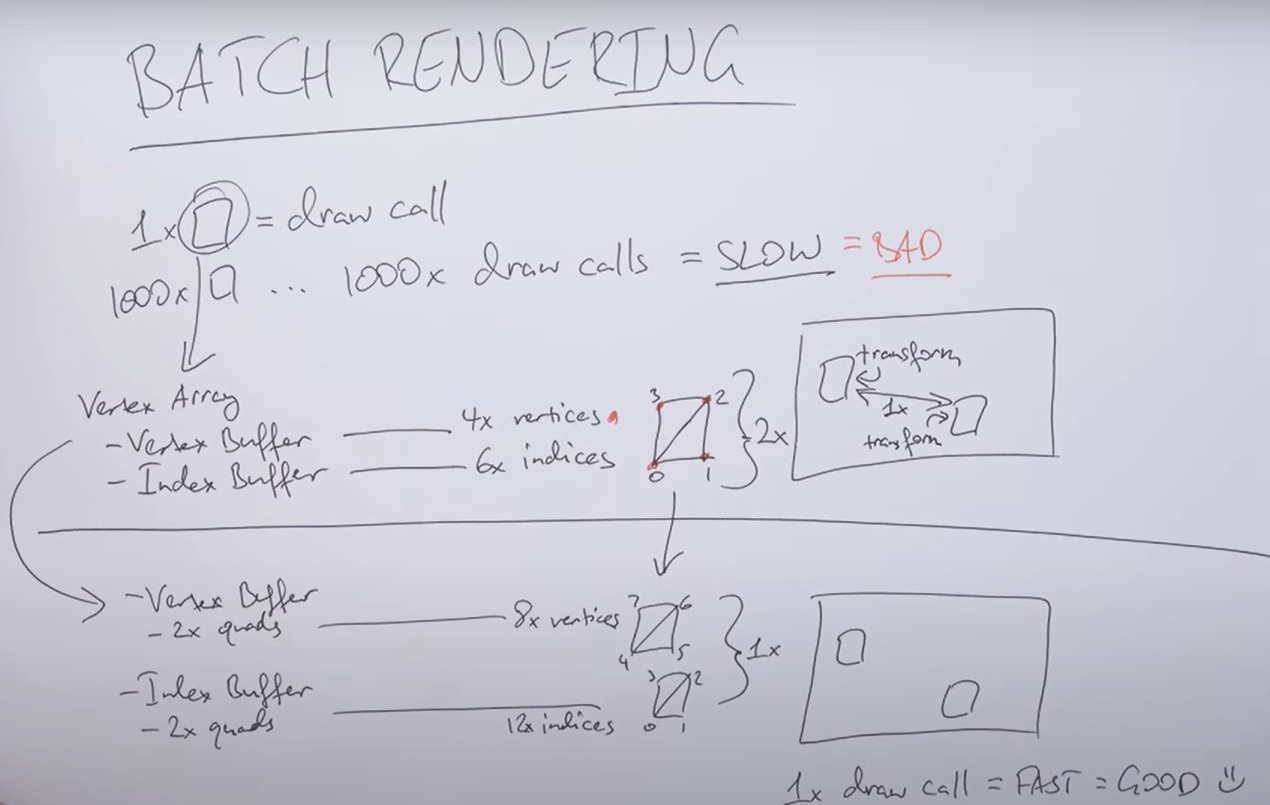 BATCH RENDERING
1x = draw call
1000x ... 1000x draw calls = SLOW = BAD
Vertex Array
- Vertex Buffer 4x vertices
- Index Buffer 6x indices
3 2
0 1
2x
transform
1x
transform
- Vertex Buffer
- 2x quads 8x vertices
7 6
4 5
1x
- Index Buffer
- 2x quads 12x indices
3 2
0 1
1x draw call = FAST = GOOD